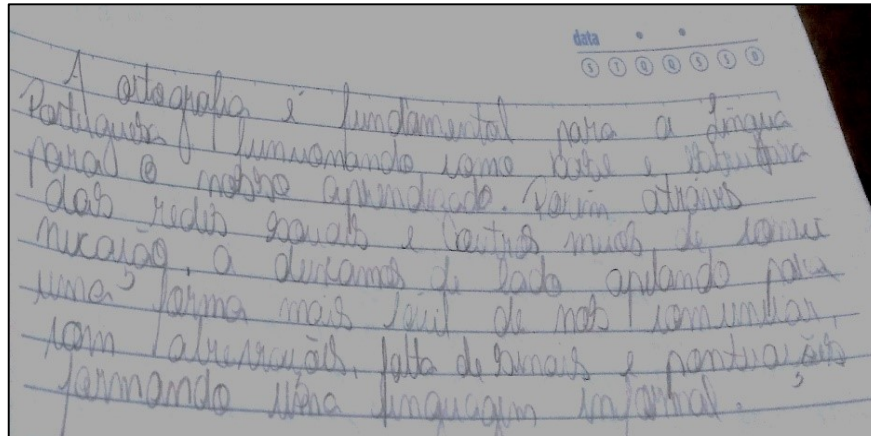 data
S T Q Q S S D
A ortografia é fundamental para a Língua
Portuguesa, funcionando como base e estrutura
para o nosso aprendizado. Porém através
das redes sociais e outros meios de comu
nicação, a deixamos de lado apelando para
uma forma mais fácil de nos comunicar,
com abreviações, falta de sinais e pontuações
formando uma linguagem informal.